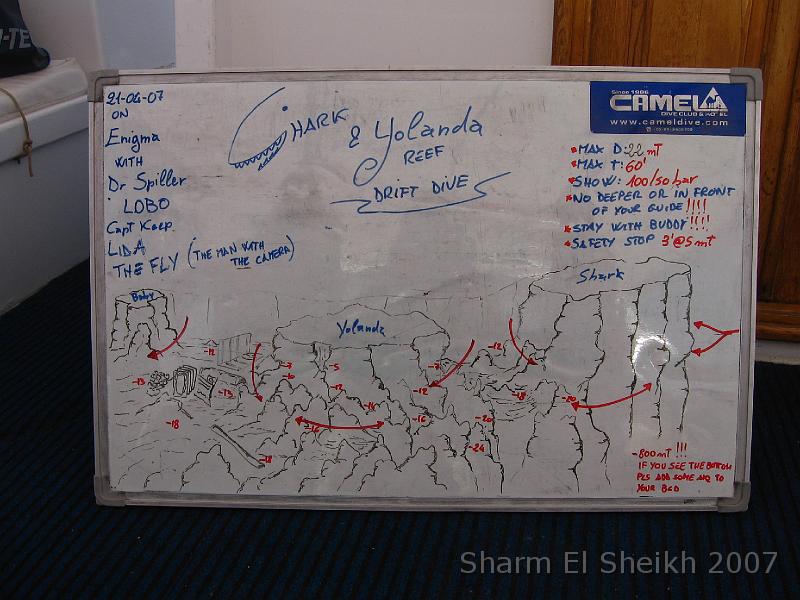 21-04-07
ON
Enigma
WITH
Dr Spiller
LOBO
Capt Koep
LIDA
THE FLY (THE MAN WITH THE CAMERA)
SHARK & Yolanda
REEF
DRIFT DIVE
Since 1986
CAMEL
DIVE CLUB & HOTEL
www.cameldive.com
MAX D: 22 mT
MAX T: 60'
SHOW: 100/50 bar
NO DEEPER OR IN FRONT
OF YOUR GUIDE !!!!
STAY WITH BUDDY !!!!
SAFETY STOP 3'@5mt
Shark
Yolanda
Boby
-12
-13
-13
-18
-18
-7
-10
-5
-12
-14
-16
-16
-7
-12
-12
-18
-20
-24
-20
-800mt !!!
IF YOU SEE THE BOTTOM
PLS ADD SOME AIR TO
YOUR BCD
Sharm El Sheikh 2007